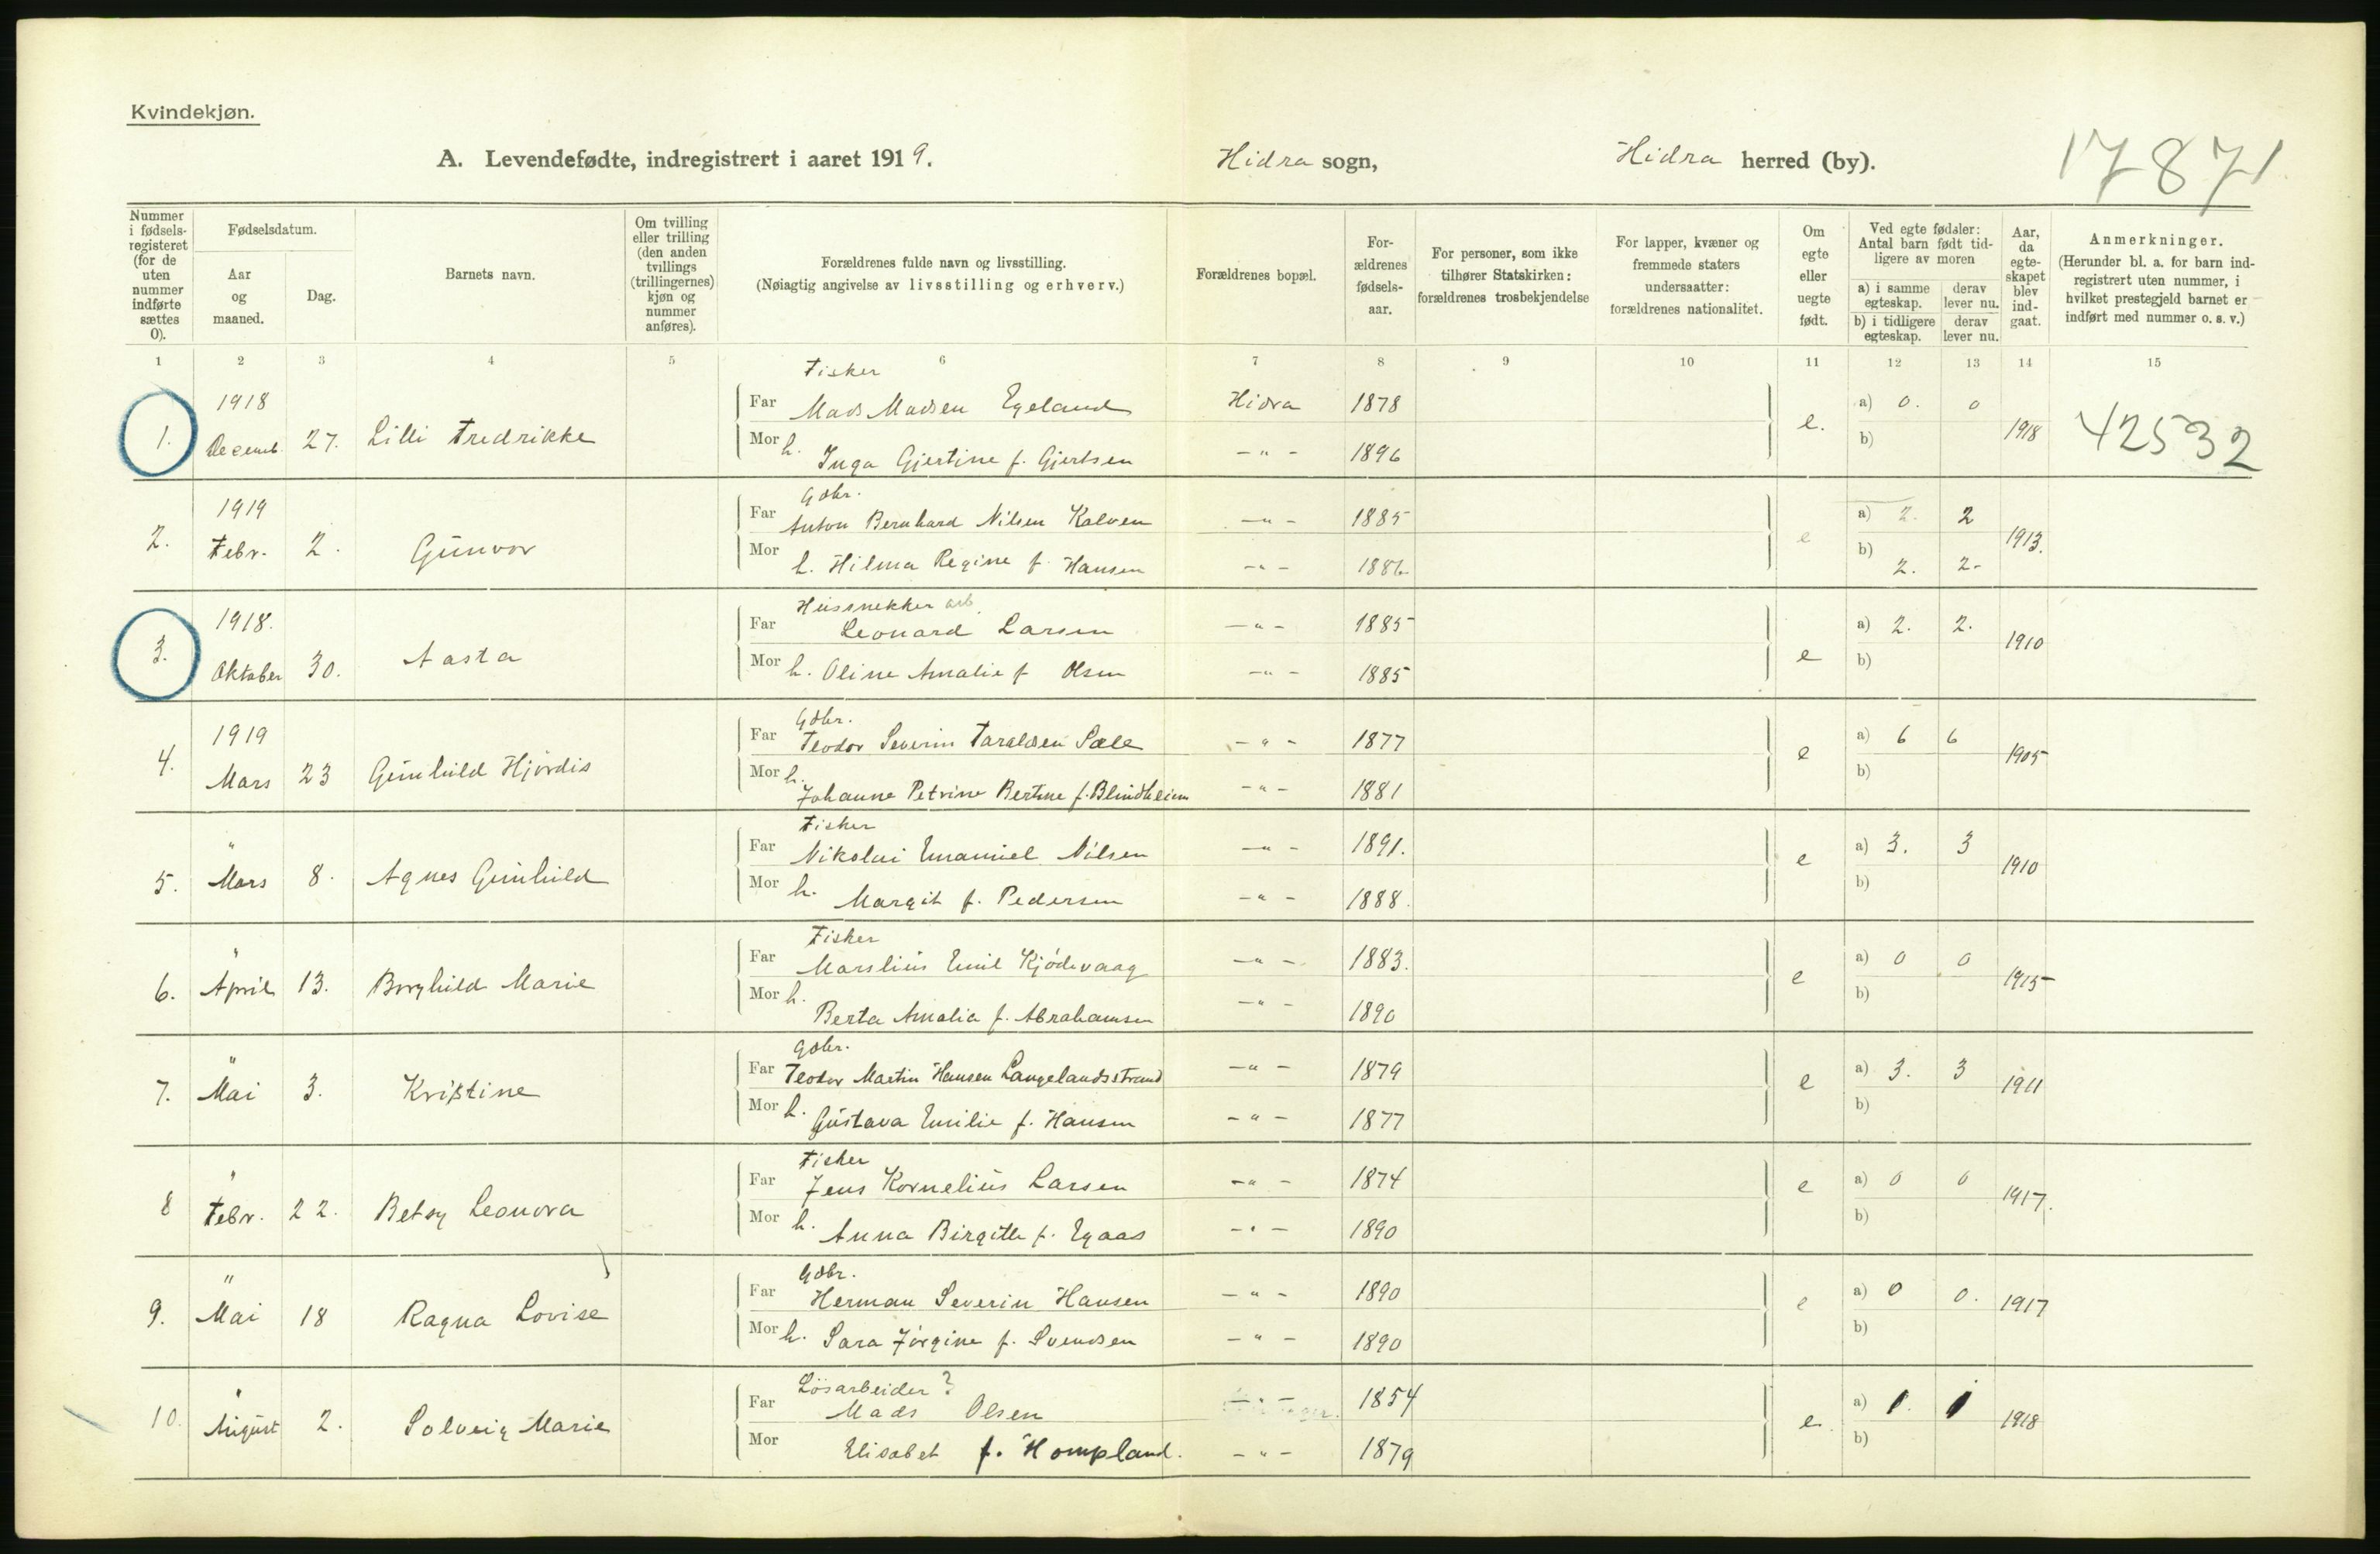 Kvindekjøn.
A. Levendefødte, indregistrert i aaret 1919. Hidra sogn, Hidra herred (by). 17871
Nummer i fødsels-registeret (for de uten nummer indførte sættes 0).
Fødselsdatum.
Aar og maaned.
Dag.
Barnets navn.
Om tvilling eller trilling (den anden tvillings (trillingernes) kjøn og nummer anføres).
Forældrenes fulde navn og livsstilling.
(Nøiagtig angivelse av livsstilling og erhverv.)
Forældrenes bopæl.
For-ældrenes fødsels-aar.
For personer, som ikke tilhører Statskirken: forældrenes trosbekjendelse
For lapper, kvæner og fremmede staters undersaatter: forældrenes nationalitet.
Om egte eller uegte født.
Ved egte fødsler: Antal barn født tid-ligere av moren
a) i samme egteskap. derav lever nu.
b) i tidligere egteskap. derav lever nu.
Aar, da egte-skapet blev ind-gaat.
Anmerkninger.
(Herunder bl. a. for barn ind-registrert uten nummer, i hvilket prestegjeld barnet er indført med nummer o. s. v.)
1 2 3 4 5 6 7 8 9 10 11 12 13 14 15
Fisker
1. 1918 Decemb. 27. Lilli Fredrikke Far Mads Madsen Egeland Hidra 1878 e. a) 0. 0 1918 42532
Mor h. Inga Gjertine f. Gjertsen -"- 1896 b)
Gdbr.
2. 1919 Febr. 2. Gunvor Far Anton Bernhard Nilsen Kalven -"- 1885 e a) 2. 2 1913.
Mor h. Hilma Regine f. Hansen -"- 1886 b) 2. 2-
Hussnekker arb
3. 1918. Oktober 30. Aasta Far Leonard Larsen -"- 1885 e a) 2. 2. 1910
Mor h. Oline Amalie f Olsen -"- 1885 b)
Gdbr.
4. 1919 Mars 23 Gunhild Hjördis Far Teodor Severin Taraldsen Sæle -"- 1877 e a) 6 6 1905
Mor h. Johanne Petrine Bertine f. Blindheim -"- 1881 b)
Fisker
5. " Mars 8. Agnes Gunhild Far Nikolai Emanuel Nilsen -"- 1891. e a) 3. 3 1910
Mor h. Margit f. Pedersen -"- 1888. b)
Fisker
6. " April 13. Borghild Marie Far Marslius Emil Kjödevaag -"- 1883. e a) 0 0 1915
Mor h. Berta Amalia f. Abrahamsen -"- 1890 b)
Gdbr.
7. " Mai 3. Kristine Far Teodor Martin Hansen Langelandsstrand -"- 1879 e a) 3. 3 1911
Mor h. Gustava Emilie f. Hansen -"- 1877 b)
Fisker
8 " Febr. 22. Betsy Leonora Far Jens Kornelius Larsen -"- 1874 e a) 0 0 1917.
Mor h. Anna Birgitte f. Egaas -"- 1890 b)
Gdbr.
9. " Mai 18 Ragna Lovise Far Herman Severin Hansen -"- 1890 e a) 0 0. 1917
Mor h. Sara Jörgine f. Svendsen -"- 1890 b)
Lösarbeider ?
10. " August 2. Solveig Marie Far Mads Olsen -"- 1854 e. a) 1. 1 1918
Mor Elisabet f. Hompland. -"- 1879 b)